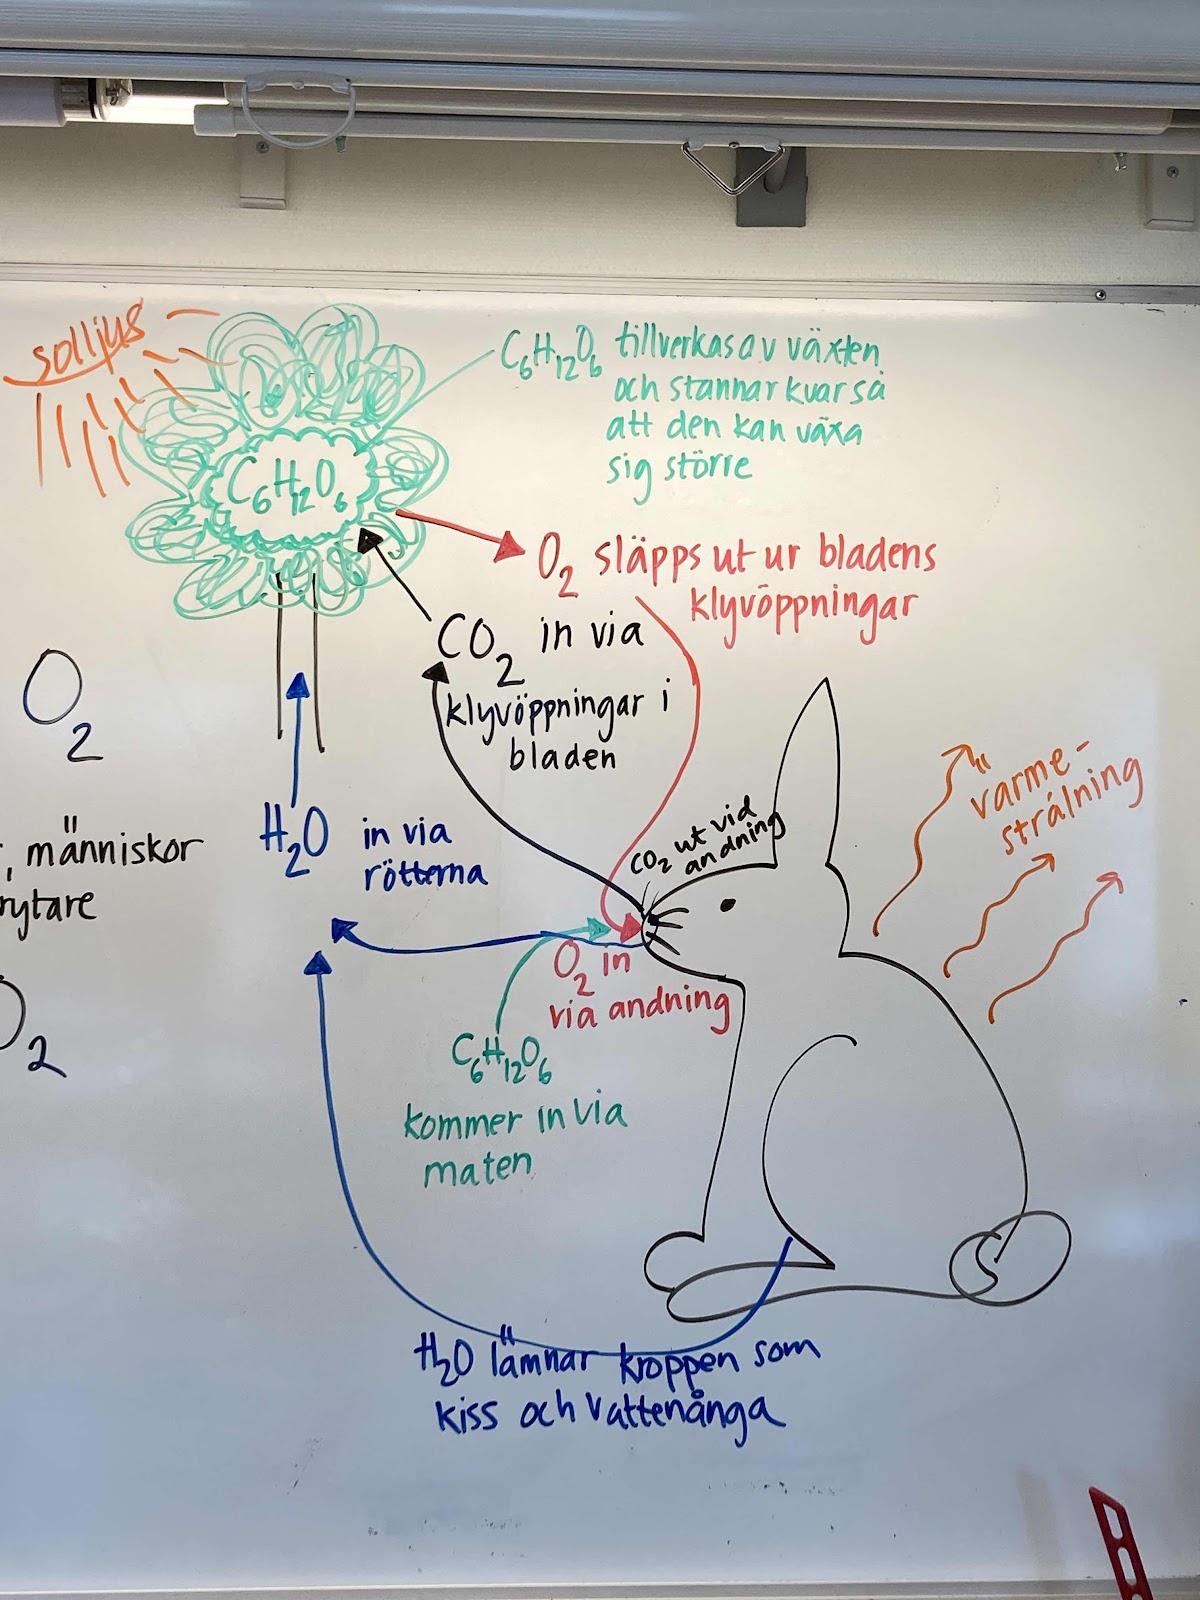 solljus
C₆H₁₂O₆ tillverkas av växten
och stannar kvar så
att den kan växa
sig större
C₆H₁₂O₆
O₂ släpps ut ur bladens
klyvöppningar
CO₂ in via
klyvöppningar i
bladen
O₂
H₂O in via
rötterna
människor
rytare
O₂
CO₂ ut vid
andning
värme-
strålning
O₂ in
via andning
C₆H₁₂O₆
kommer in via
maten
H₂O lämnar kroppen som
kiss och vattenånga